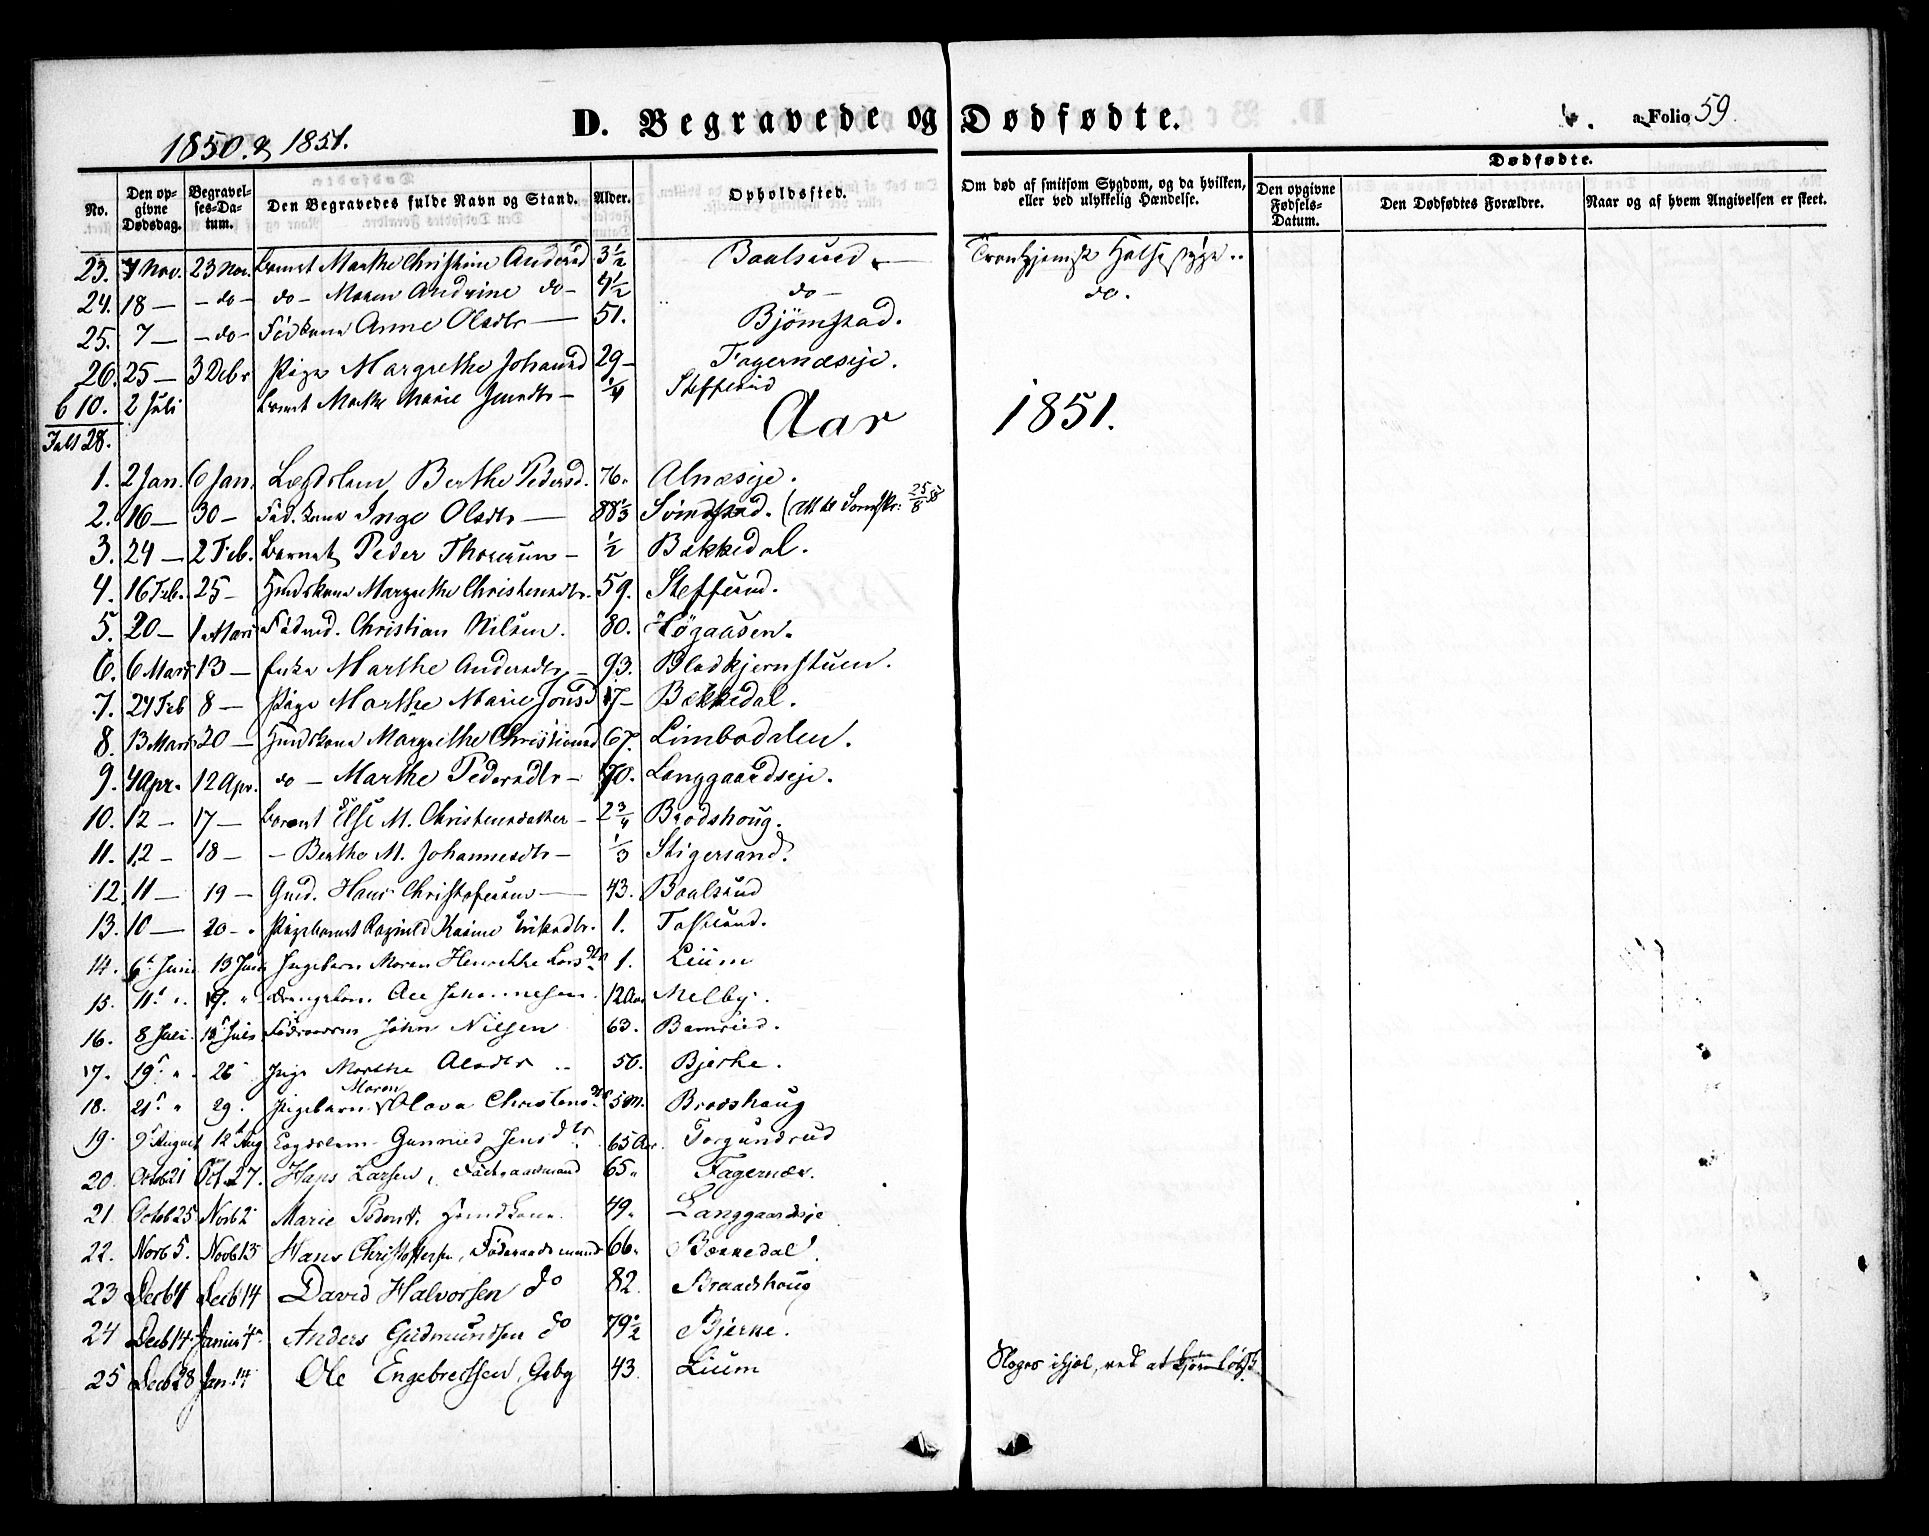 D. Begravede og Dødfødte.
a Folio 59.
1850. & 1851.
No. Den opgivne Dødsdag. Begravelses-Datum. Den Begravedes fulde Navn og Stand. Alder. Opholdssted. Om død af smitsom Sygdom, og da hvilken, eller ved ulykkelig Hændelse. Dødfødte. Den opgivne Fødsels-Datum. Den Dødfødtes Forældre. Naar og af hvem Angivelsen er skeet.
23. 7 Nov. 23 Nov. Barnet Marthe Christine Andersd 3½ Baalsrud
24. 18 — — do — do — Maren Andrine do — 4½ do — do.
25. 7 — — do — Anne Olsdtr — 51. Bjørnstad.
26. 25 — 3 Debr Pige Margrethe Johansd 29 — Fagernæseje.
6 10. 2 Juli Barnet Marthe Marie Jensdtr — ¼ Stefferud
28.
Aar 1851.
1. 2 Jan. 6 Jan. Lægdslem Berthe Pedersd. 76. Alnæseje.
2. 16 — 30 — Inge Olsdtr — 88⅓
3. 24 — 2 Feb. Barnet Peder Thoresen — ½ Bækkedal.
4. 16 Feb. 25 — Huuskone Margrethe Christensdtr. 59. Stefferud.
5. 20 — 1 Marts Christian Nilsen. 80. Høgaasen.
6. 6 Marts 13 — Enke Marthe Andersdtr — 93. Bladkjernstuen.
7. 24 Feb 8 — Pige Marthe Marie Jonsd 17 — Bækkedal.
8. 13 Marts 20 — Huuskone Margrethe Christiansd 67. Limbodalen.
9. 4 Apr. 12 Apr. do — Marthe Pedersdtr — 70. Langgaardseje.
10. 12 — 17 — Barnet Else M. Christensdatter — 2¾ Brodshoug.
11. 12 — 18 — — Berthe M. Johannesdtr — ⅓ Stigersand.
12. 11 — 19 — Gmd. Hans Christofersen — 43. Baalsrud
13. 10 — 20 — Pigebarnet Ragnild Karine Eriksdtr. 1. Taskerud.
14. 6 Juni 13 Juni Pigebarn Maren Henrikke Larsdtr 1. Lium
15. 11 " 19. " Drengebarn. Ole Johannesen 12 Aar Melby.
16. 8 Juli 18 Juli John Nilsen 63.
17. 19 " 26 Pige Marthe Olsdtr 50. Bjerke.
18. 21 " 29. Pigebarn Maren Olava Christensdtr 5 M. Brodshoug
19. 9 August 12 Aug Lægdslem Gunnild Jensdtr 65 Aar. Torgundrud
20. Octob 21 Oct. 27. Hans Larsen, Føderaadsmand 65 " Fagernæs.
21. Octob 25 Novb 2 Marie Huuskone 49 " Langgaardseje
22. Novb 5. Novb 13 Hans Christophersen, Føderaadsmand 66 " Bækkedal
23 Decb 4 Decb 14 David Halvorsen do 82. Braadshoug
24 Decb 14. Januar 4 Anders Gudmundsen do 79½ Bjerke.
25 Decb 28 Jan. 14 Ole Engebretsen, Gsby 43. Lium Sloges ihjel, ved at